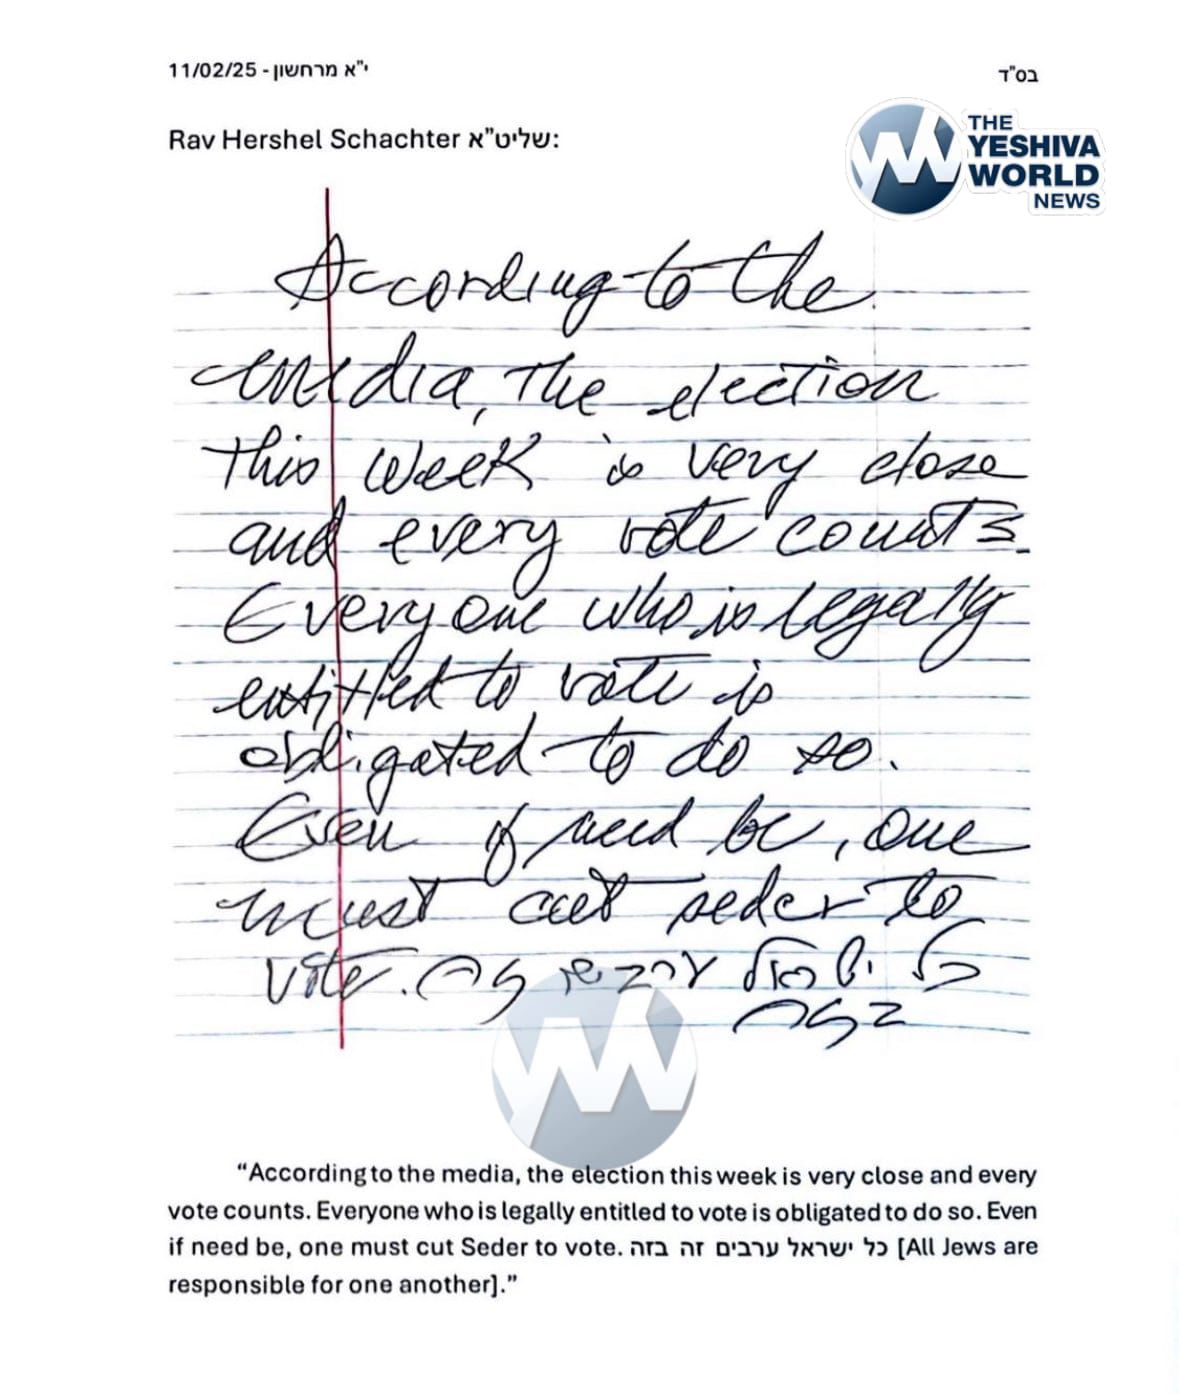 בס"ד
י"א מרחשון - 11/02/25
THE
YESHIVA
WORLD
NEWS
Rav Hershel Schachter שליט"א:
According to the
media, the election
this week is very close
and every vote counts.
Everyone who is legally
entitled to vote is
obligated to do so.
Even if need be, one
must cut seder to
vote. כל ישראל ערבים זה
בזה
"According to the media, the election this week is very close and every
vote counts. Everyone who is legally entitled to vote is obligated to do so. Even
if need be, one must cut Seder to vote. כל ישראל ערבים זה בזה [All Jews are
responsible for one another]."